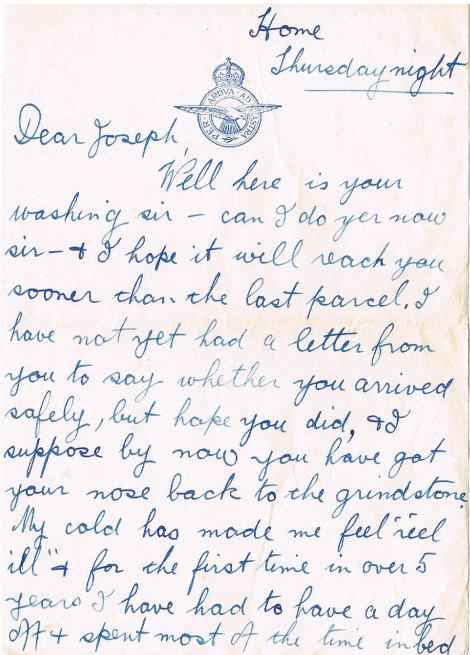 Home
Thursday night
PER · ARDVA · AD · ASTRA
Dear Joseph,
Well here is your
washing sir – can I do yer now
sir – & I hope it will reach you
sooner than the last parcel. I
have not yet had a letter from
you to say whether you arrived
safely, but hope you did, & I
suppose by now you have got
your nose back to the grindstone.
My cold has made me feel "reel
ill" & for the first time in over 5
years I have had to have a day
off & spent most of the time in bed